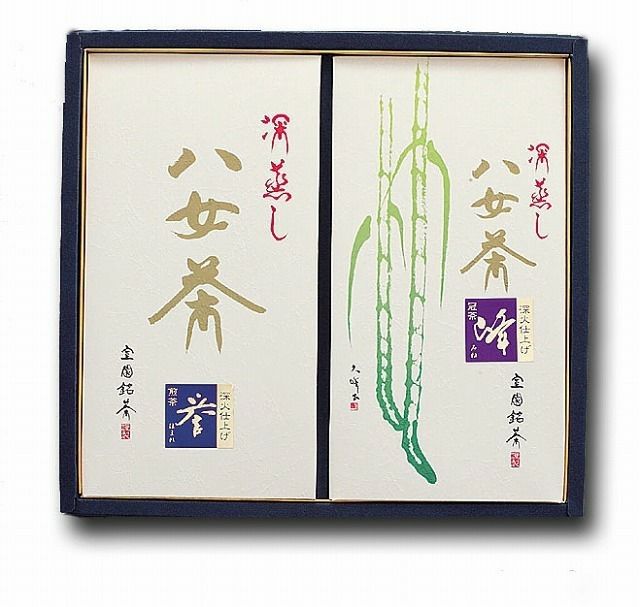 深蒸し
八女茶
深火仕上げ
煎茶
誉
ほまれ
星園銘茶
謹製
深蒸し
八女茶
深火仕上げ
冠茶
峰
みね
星園銘茶
謹製